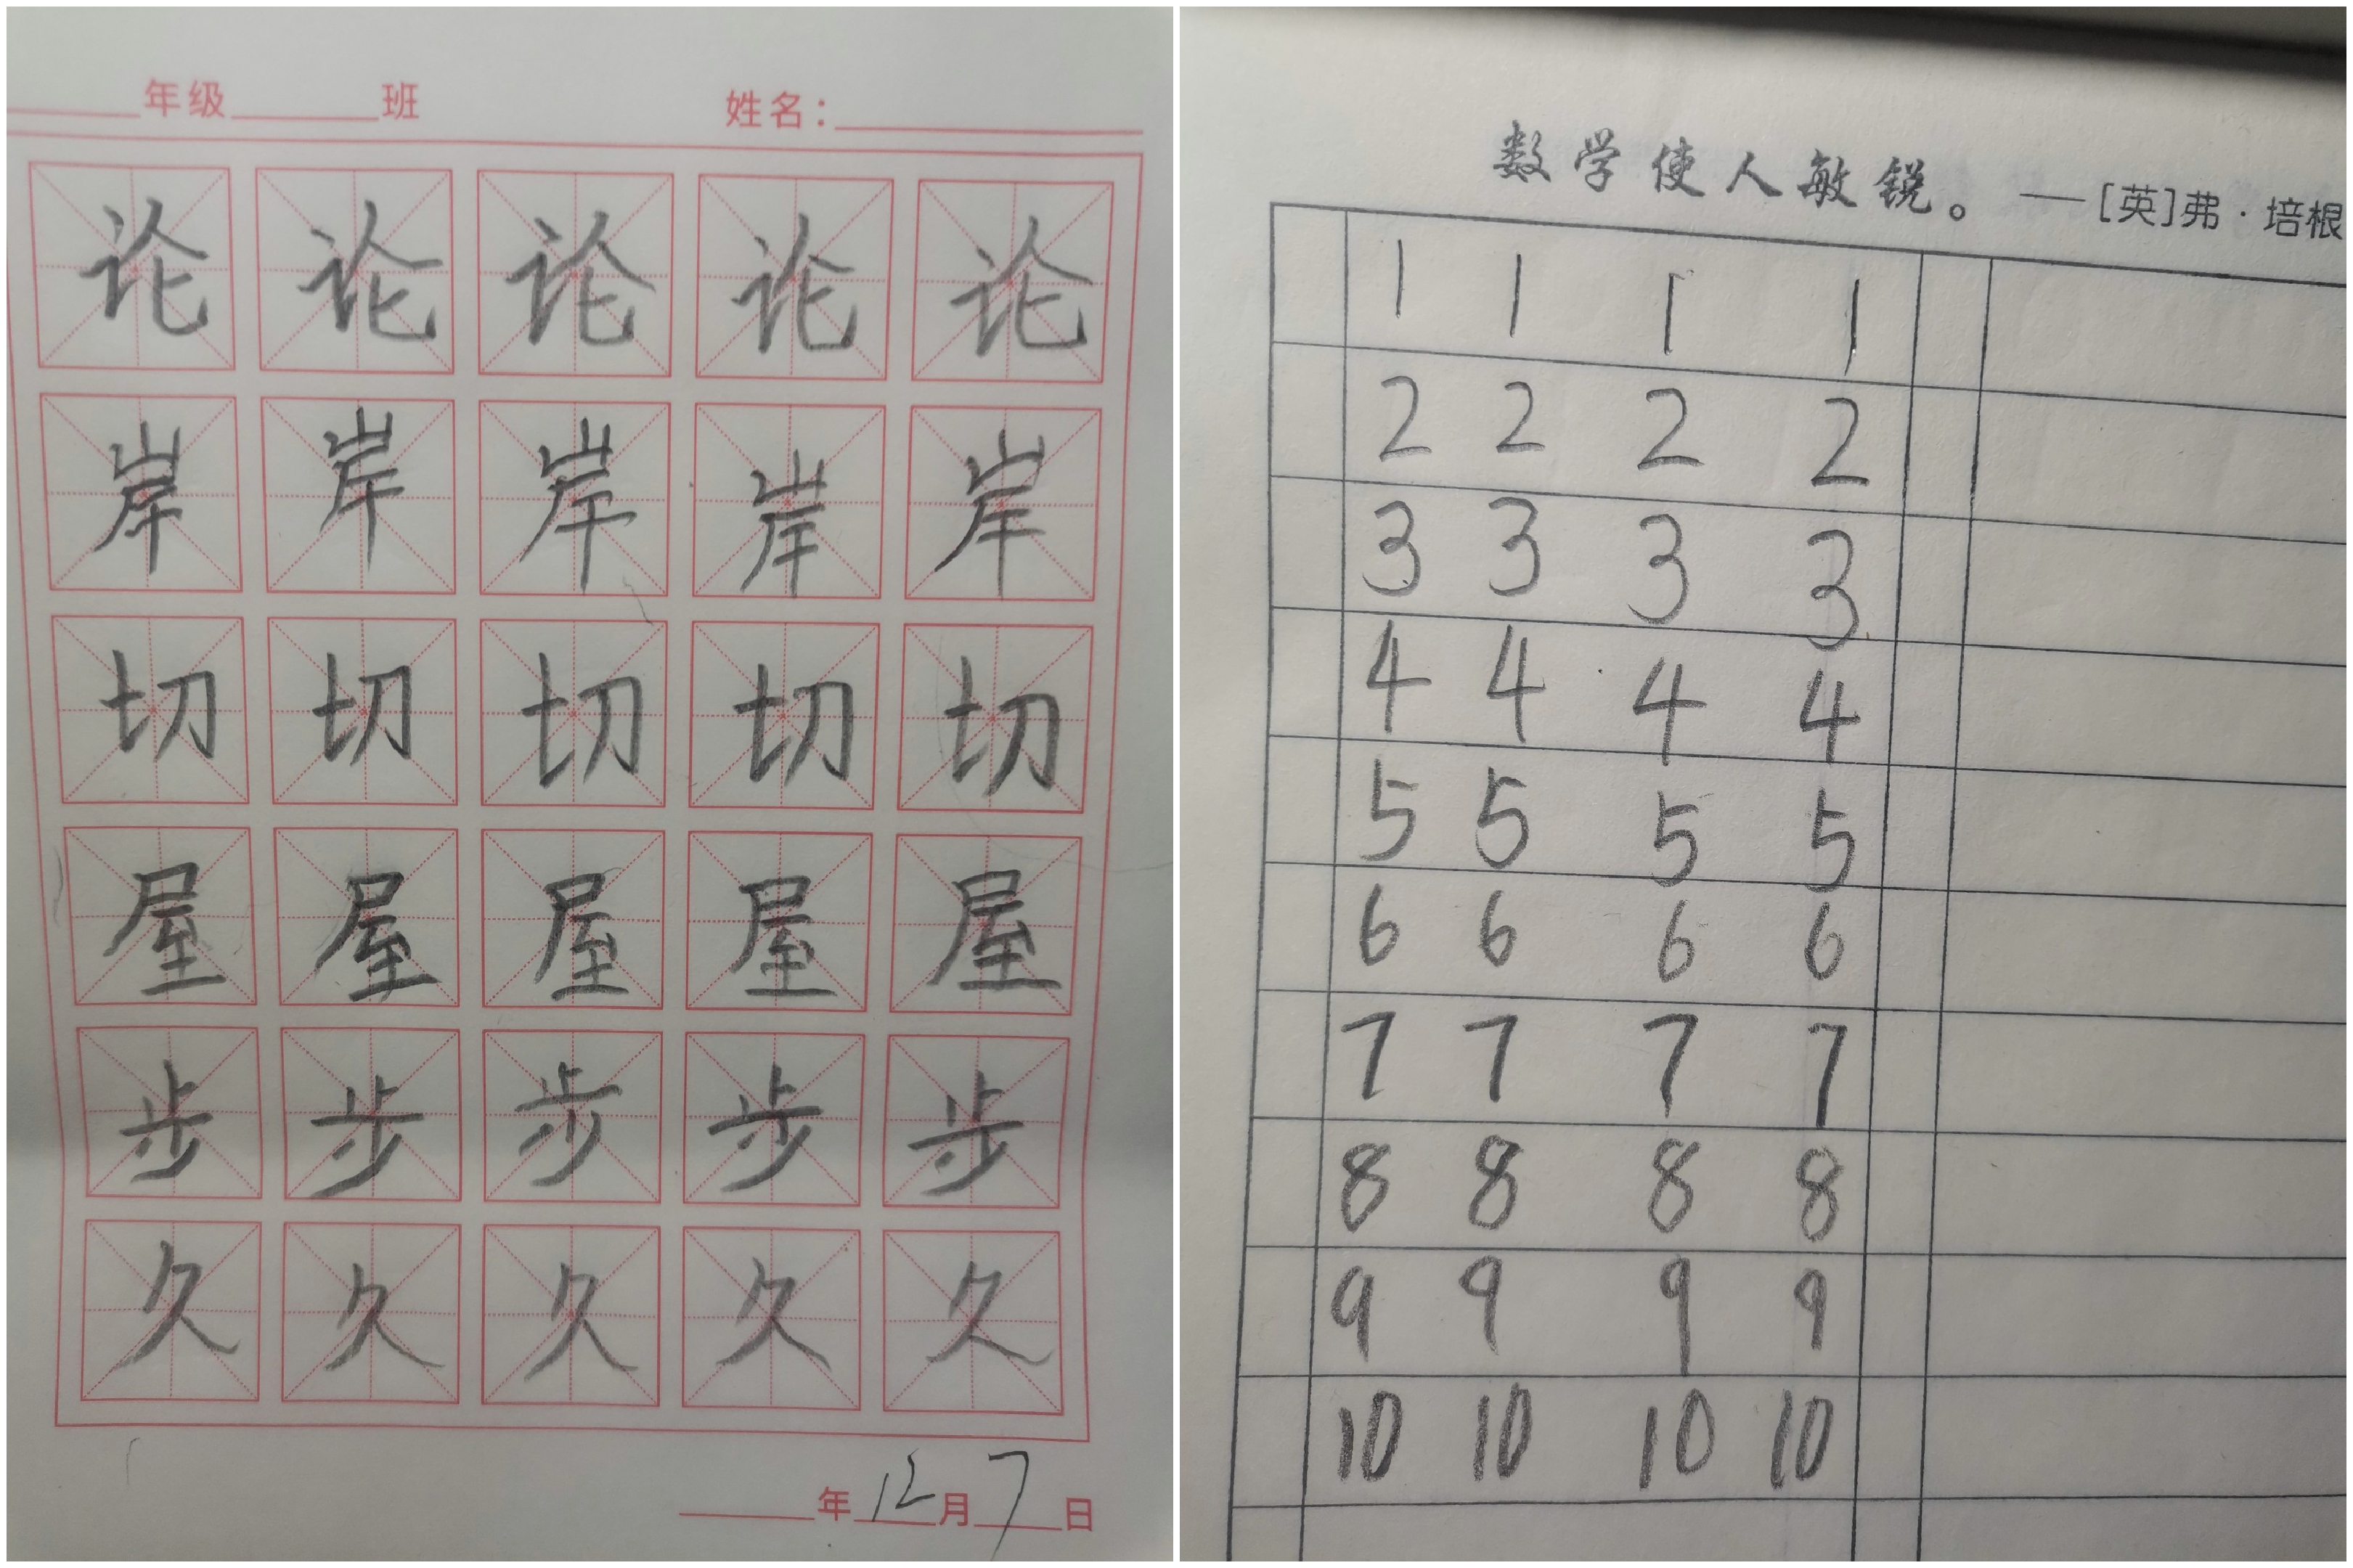 年级 班 姓名：
论 论 论 论 论
岸 岸 岸 岸 岸
切 切 切 切 切
屋 屋 屋 屋 屋
步 步 步 步 步
久 久 久 久 久
年12月7日
数学使人敏锐。——[英]弗·培根
1 1 1 1
2 2 2 2
3 3 3 3
4 4 4 4
5 5 5 5
6 6 6 6
7 7 7 7
8 8 8 8
9 9 9 9
10 10 10 10